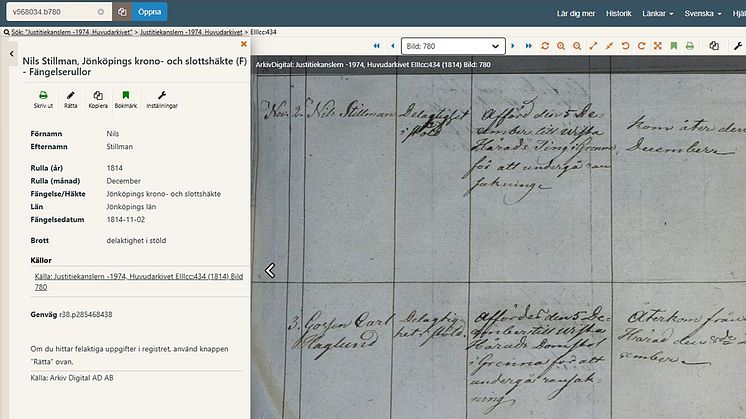 v568034.b780
Öppna
Lär dig mer
Historik
Länkar
Svenska
Hjäl
Sök: "Justitiekanslern -1974, Huvudarkivet" > Justitiekanslern -1974, Huvudarkivet > EIIIcc:434
Nils Stillman, Jönköpings krono- och slottshäkte (F)
- Fångselrullor
Skriv ut
Rätta
Kopiera
Bokmärk
Inställningar
Förnamn Nils
Efternamn Stillman
Rulla (år) 1814
Rulla (månad) December
Fängelse/Häkte Jönköpings krono- och slottshäkte
Län Jönköpings län
Fängelsedatum 1814-11-02
Brott delaktighet i stöld
Källor
Källa: Justitiekanslern -1974, Huvudarkivet EIIIcc:434 (1814) Bild
780
Genväg r38.p285468438
Om du hittar felaktiga uppgifter i registret, använd knappen
"Rätta" ovan.
Källa: Arkiv Digital AD AB
Bild: 780
ArkivDigital: Justitiekanslern -1974, Huvudarkivet EIIIcc:434 (1814) Bild: 780
Nov. 2. Nils Stillman
Delagtighet
i stöld
Afförd den 5 De-
cember till Wista
Härads Ting i Grenna
för att undergå ran
sakning
kom åter den
December
3. Gossen Carl
Haglund
Delagtig-
het i stöld
Affördes den 5 De-
cember till Wista
Härads Domstol
i Grenna för att
undergå ransak-
ning
Återkom från
Härad den
cember